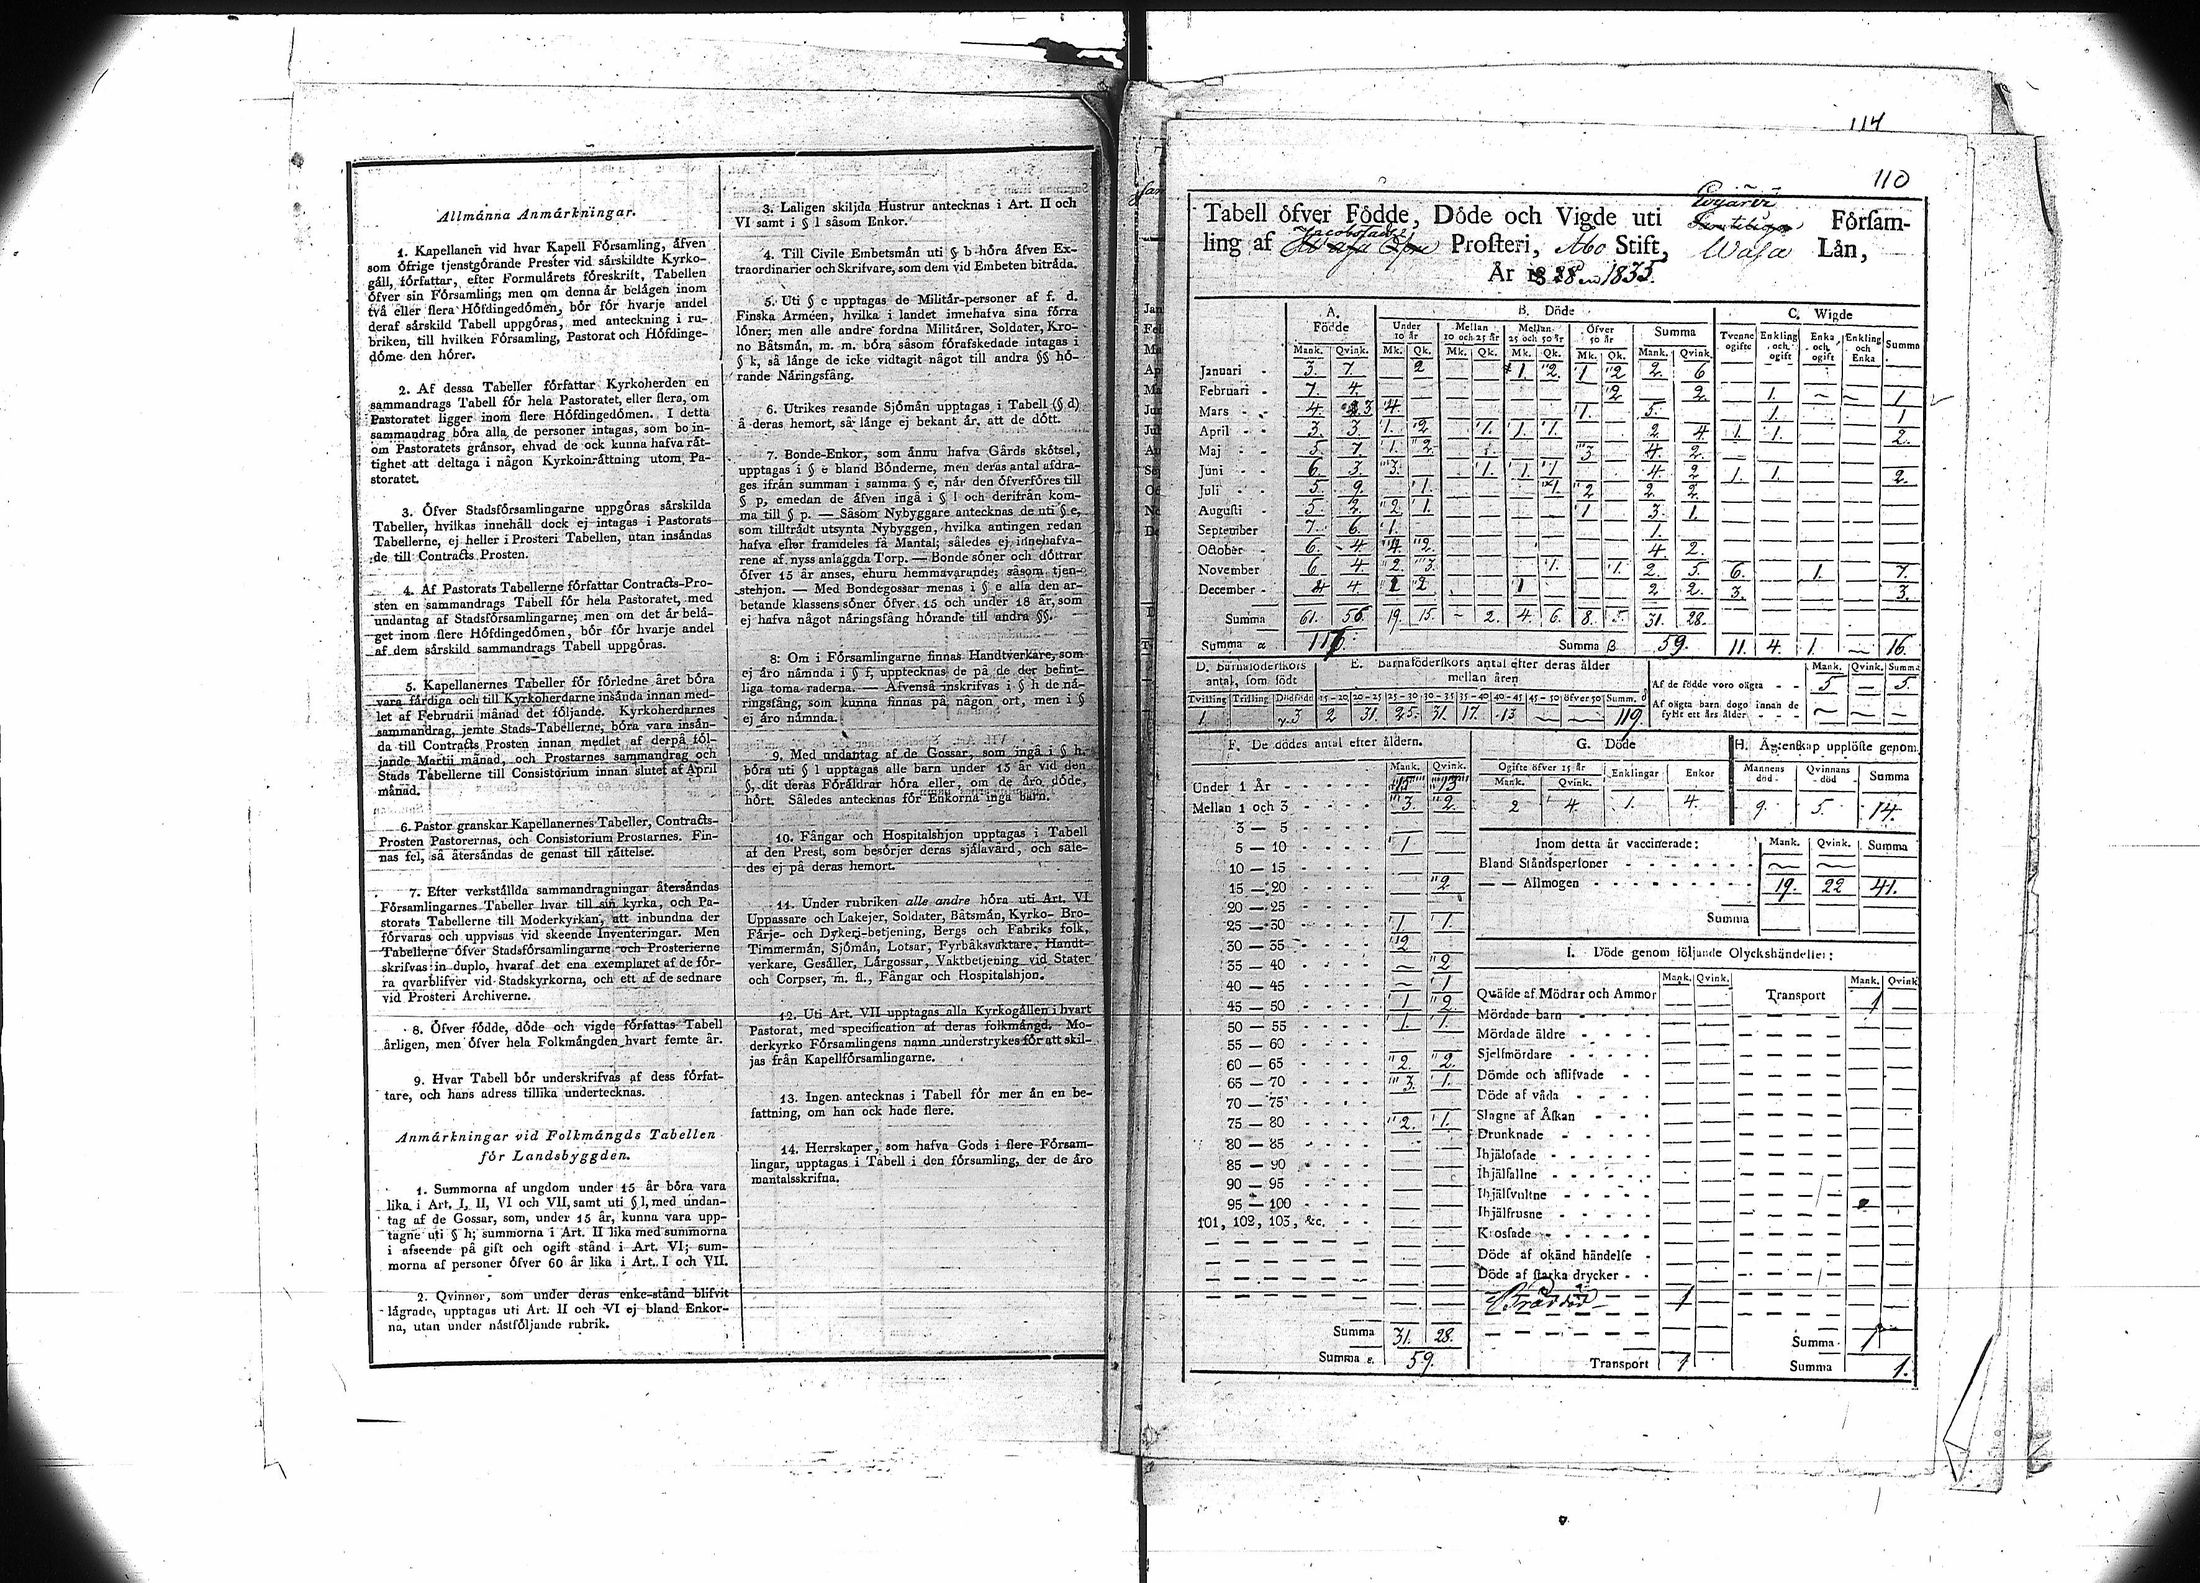 Allmánna Anmárkningar.
1. Kapellanen vid hvar Kapell Fórsamling, áfven
som ófrige tjenstgórande Prester vid sárskildte Kyrko-
gáll, fórfattar, efter Formulárets fóreskrift, Tabellen
ófver sin Fórsamling; men om denna ár belágen inom
två eller flera Hófdingedómen, bór fór hvarje andel
deraf sárskild Tabell uppgóras, med anteckning i ru-
briken, till hvilken Fórsamling, Pastorat och Hófdinge-
dóme den hórer.
2. Af dessa Tabeller fórfattar Kyrkoherden en
sammandrags Tabell fór hela Pastoratet, eller flera, om
Pastoratet ligger inom flere Hófdingedómen. I detta
sammandrag bóra alla de personer intagas, som bo in-
om Pastoratets gránsor, ehvad de ock kunna hafva rát-
tighet att deltaga i någon Kyrkoinráttning utom Pa-
storatet.
3. Ófver Stadsfórsamlingarne uppgóras sárskilda
Tabeller, hvilkas innehåll dock ej intages i Pastorats
Tabellerne, ej heller i Prosteri Tabellen, utan insándas
de till Contracts Prosten.
4. Af Pastorats Tabellerne fórfattar Contracts-Pro-
sten en sammandrags Tabell fór hela Pastoratet, med
undantag af Stadsfórsamlingarne; men om det år belá-
get inom flere Hófdingedómen, bór fór hvarje andel
af dem sárskild sammandrags Tabell uppgóras.
5. Kapellanernes Tabeller fór fórledne året bóra
vara fárdiga och till Kyrkoherdarne insánda innan med-
let af Februarii månad det fóljande. Kyrkoherdarnes
sammandrag, jemte Stads-Tabellerne, bóra vara insán-
da till Contracts Prosten innan medlet af derpå fól-
jande Martii månad, och Prostarnes sammandrag och
Stads Tabellerne till Consistorium innan slutet af April
månad.
6. Pastor granskar Kapellanernes Tabeller, Contracts-
Prosten Pastorernas, och Consistorium Prostarnes. Fin-
nas fel, så átersándas de genast till ráttelse.
7. Efter verkstállda sammandragningar átersándas
Fórsamlingarnes Tabeller hvar till sin kyrka, och Pa-
storats Tabellerne till Moderkyrkan, att inbundna der
fórvaras och uppvisas vid skeende Inventeringar. Men
Tabellerne ófver Stadsfórsamlingarne och Prosterierne
skrifvas in duplo, hvaraf det ena exemplaret af de fór-
ra qvarblifver vid Stadskyrkorna, och ett af de sednare
vid Prosteri Archiverne.
8. Ófver fódde, dóde och vigde fórfattas Tabell
årligen, men ófver hela Folkmángden hvart femte år.
9. Hvar Tabell bór underskrifvas af dess fórfat-
tare, och hans adress tillika undertecknas.
Anmárkningar vid Folkmángds Tabellen
fór Landsbyggden.
1. Summorna af ungdom under 15 år bóra vara
lika i Art. I, II, VI och VII, samt uti § l, med undan-
tag af de Gossar, som, under 15 år, kunna vara upp-
tagne uti § h; summorna i Art. II lika med summorna
i afseende på gift och ogift stånd i Art. VI; sum-
morna af personer ófver 60 år lika i Art. I och VII.
2. Qvinnor, som under deras enke-stånd blifvit
lágrade, upptagas uti Art. II och VI ej bland Enkor-
na, utan under nástfóljande rubrik.
3. Laligen skiljda Hustrur antecknas i Art. II och
VI samt i § l såsom Enkor.
4. Till Civile Embetsmán uti § b hóra áfven Ex-
traordinarier och Skrifvare, som dem vid Embeten bitráda.
5. Uti § c upptagas de Militár-personer af f. d.
Finska Arméen, hvilka i landet innehafva sina fórra
lóner; men alle andre fordna Militárer, Soldater, Kro-
no Båtsmán, m. m. bóra såsom fórafskedade intagas i
§ k, så lánge de icke vidtagit något till andra §§ hó-
rande Náringsfáng.
6. Utrikes resande Sjómán upptagas i Tabell (§ d)
å deras hemort, så lánge ej bekant år, att de dótt.
7. Bonde-Enkor, som ánnu hafva Gårds skótsel,
upptagas i § e bland Bónderne, men deras antal afdra-
ges ifrån summan i samma § e, når den ófverfóres till
§ p, emedan de áfven ingå i § l och derifrån kom-
ma till § p. — Såsom Nybyggare antecknas de uti § e,
som tilltrådt utsynta Nybyggen, hvilka antingen redan
hafva eller framdeles få Mantal; således ej innehafva-
rene af nyss anlaggda Torp. — Bonde sóner och dóttrar
ófver 15 år anses, ehuru hemmavarande, såsom tjen-
stehjon. — Med Bondegossar menas i § e alla den ar-
betande klassens sóner ófver 15 och under 18 år, som
ej hafva något náringsfáng hórande till andra §§.
8: Om i Fórsamlingarne finnas Handtverkare, som
ej áro námnda i § f, upptecknas de på de der befint-
liga toma raderna. — Áfvenså inskrifvas i § h de ná-
ringsfáng, som kunna finnas på någon ort, men i §
ej áro námnda.
9. Med undantag af de Gossar, som ingå i § h,
bóra uti § l upptagas alle barn under 15 år vid den
§, dit deras Fóráldrar hóra eller, om de áro dóde,
hórt. Således antecknas fór Enkorna inga barn.
10. Fångar och Hospitalshjon upptagas i Tabell
af den Prest, som besórjer deras sjálavård, och såle-
des ej på deras hemort.
11. Under rubriken alle andre hóra uti Art. VI
Uppassare och Lakejer, Soldater, Båtsmán, Kyrko- Bro-
Fárje- och Dykeri-betjening, Bergs och Fabriks folk,
Timmermán, Sjómán, Lotsar, Fyrbåksvaktare, Handt-
verkare, Gesáller, Lárgossar, Vaktbetjening vid Stater
och Corpser, m. fl., Fångar och Hospitalshjon.
12. Uti Art. VII upptagas alla Kyrkogállen i hvart
Pastorat, med specification af deras folkmángd. Mo-
derkyrko Fórsamlingens namn understrykes fór att skil-
jas från Kapellfórsamlingarne.
13. Ingen antecknas i Tabell fór mer án en be-
fattning, om han ock hade flere.
14. Herrskaper, som hafva Gods i flere Fórsam-
lingar, upptagas i Tabell i den fórsamling, der de áro
mantalsskrifna.
114
110
Tabell ófver Fódde, Dóde och Vigde uti Fórsam-
ling af Prosteri, Åbo Stift, Wasa Lån,
År 1835.
A. Fódde B. Dóde C. Wigde
Under 10 år Mellan 10 och 25 år Mellan 25 och 50 år Ófver 50 år Summa
Tvenne ogifte Enkling och ogift Enka och ogift Enkling och Enka Summa
Mank. Qvink. Mk. Qk. Mk. Qk. Mk. Qk. Mk. Qk. Mank. Qvink.
Januari 3. 7. 2 1. 2. 1 2 2. 6
Februari 7. 4. 2 2. 1. 1
Mars 4. 3 4. 1. 5. 1. 1
April 3. 3. 1. 2 1. 1. 1. 2. 4. 1. 1. 2.
Maj 5. 7. 1. 2 3 4. 2.
Juni 6. 3. 3. 1. 1. 1 4. 2 1. 1. 2.
Juli 5. 9. 1. 1. 2 2. 2.
Augusti 5. 2. 2. 1. 1 3. 1.
September 7. 6. 1. 1.
October 6. 4. 4. 2. 4 2.
November 6 4. 2. 3. 1. 1. 2. 5. 6. 1. 7.
December 4 4. 2 1 2 2. 3. 3.
Summa 61. 56. 19. 15. - 2. 4. 6. 8. 5. 31. 28.
Summa α Summa β 59. 11. 4. 1. — 16.
D. Barnafóderskors antal, som fódt
E. Barnafóderskors antal efter deras ålder mellan åren
Mank. Qvink. Summa
Af de fódde voro oágta 5 — 5.
Tvilling Trilling Dódfódd 15—20 20—25 25—30 30—35 35—40 40—45 45—50 ófver 50 Summ. δ
Af oágta barn dogo innan de
fyllt ett års ålder
1. 3 2 31. 25. 31. 17. 13 — — 119.
F. De dódes antal efter åldern.
Mank. Qvink.
Under 1 År 15 13
Mellan 1 och 3 3. 2.
3 — 5
5 — 10 1
10 — 15
15 — 20 2.
20 — 25
25 — 30 1 1.
30 — 35 2
35 — 40 2
40 — 45 1
45 — 50 1 2
50 — 55 1. 1.
55 — 60
60 — 65 2. 2.
65 — 70 3. 1.
70 — 75
75 — 80 2. 1.
80 — 85
85 — 90
90 — 95
95 — 100
101, 102, 103, &c.
Summa 31. 28.
Summa ε. 59.
G. Dóde
Ogifte ófver 15 år Enklingar Enkor
Mank. Qvink.
2 4. 1. 4.
H. Ágtenskap upplóste genom
Mannens dód Qvinnans dód Summa
9. 5. 14.
Inom detta år vaccinerade: Mank. Qvink. Summa
Bland Ståndspersoner
— — Allmogen 19. 22 41.
Summa
I. Dóde genom fóljande Olyckshándelser:
Mank. Qvink. Mank. Qvink
Qváfde af Módrar och Ammor Transport 1
Mórdade barn
Mórdade áldre
Sjelfmórdare
Dómde och aflifvade
Dóde af våda
Slagne af Åskan
Drunknade
Ihjálósade
Ihjálfallne
Ihjálfvultne
Ihjálfrusne
Krossade
Dóde af okánd hándelse
Dóde af starka drycker
Bråddöd 1
Summa 1
Transport 1 Summa 1.